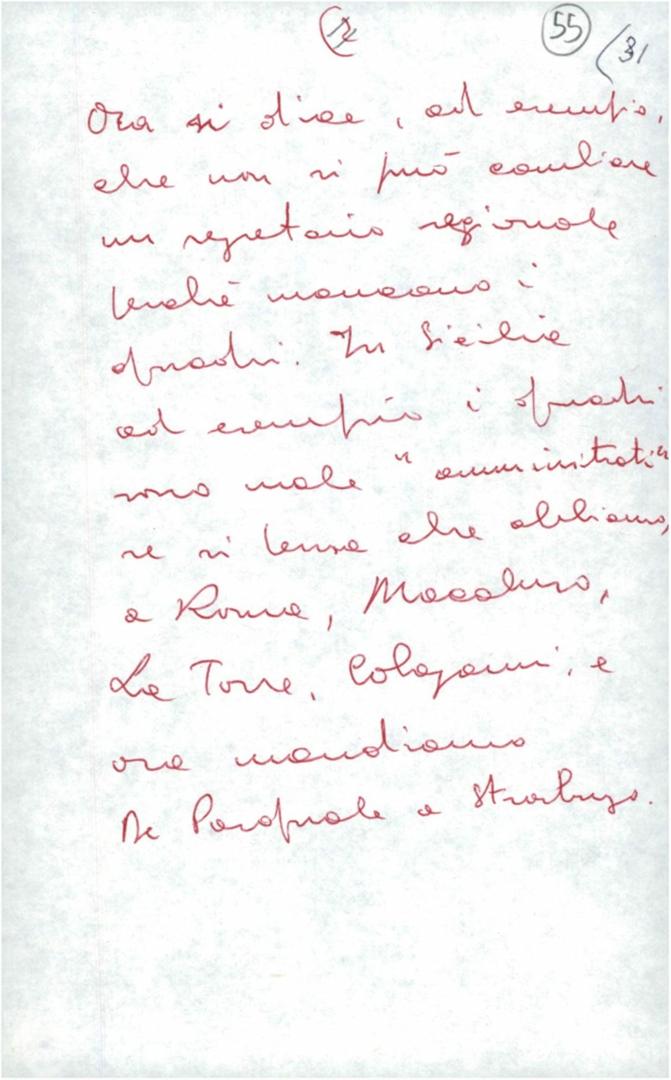 55 (31
Ora si dice, ad esempio,
che non si può cambiare
un segretario regionale
perché mancano i
quadri. In Sicilia
ad esempio i quadri
sono male "amministrati"
se si pensa che abbiamo,
a Roma, Macaluso,
La Torre, Colajanni, e
ora mandiamo
De Pasquale a Strasburgo.